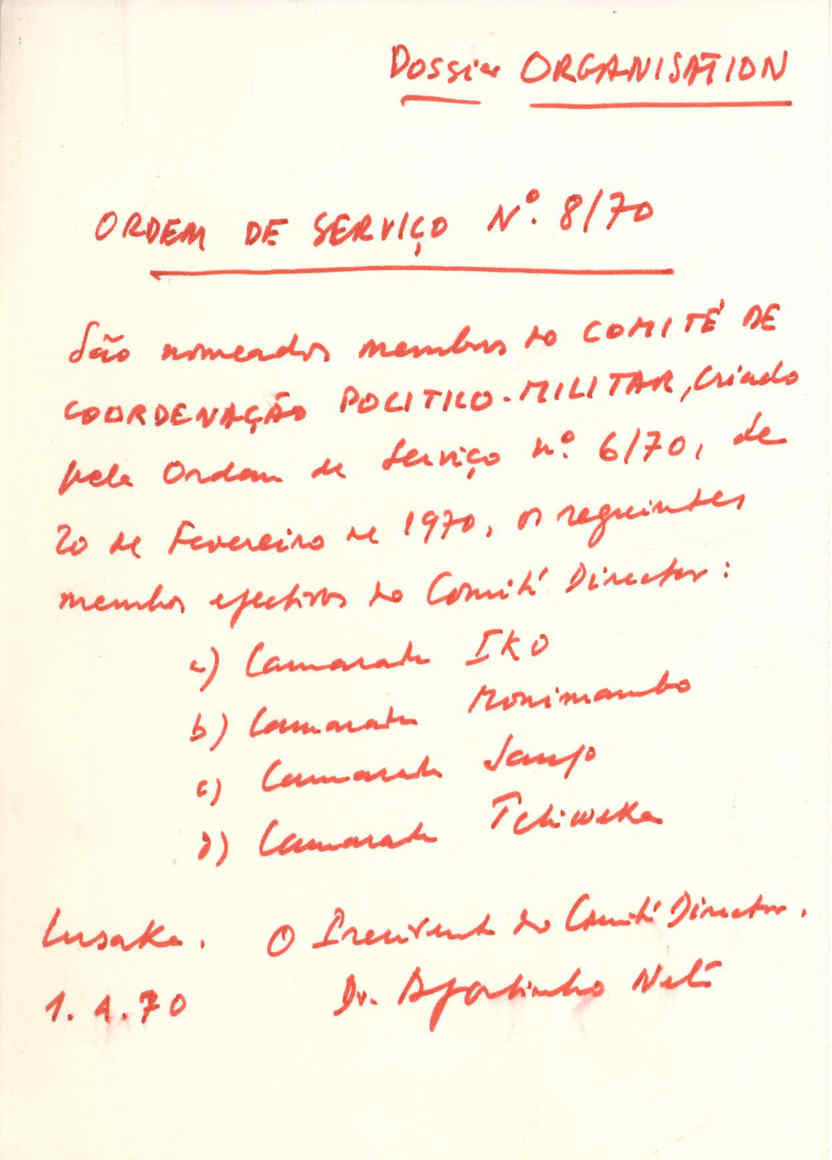 Dossier ORGANISATION
ORDEM DE SERVIÇO Nº. 8/70
São nomeados membros do COMITÉ DE
COORDENAÇÃO POLITICO-MILITAR, criado
pela Ordem de Serviço nº. 6/70, de
20 de Fevereiro de 1970, os seguintes
membros efectivos do Comité Director:
a) Camarada IKO
b) Camarada Monimambo
c) Camarada Janjo
d) Camarada Tchiweka
Lusaka. O Presidente do Comité Director.
1.4.70 Dr. Agostinho Neto